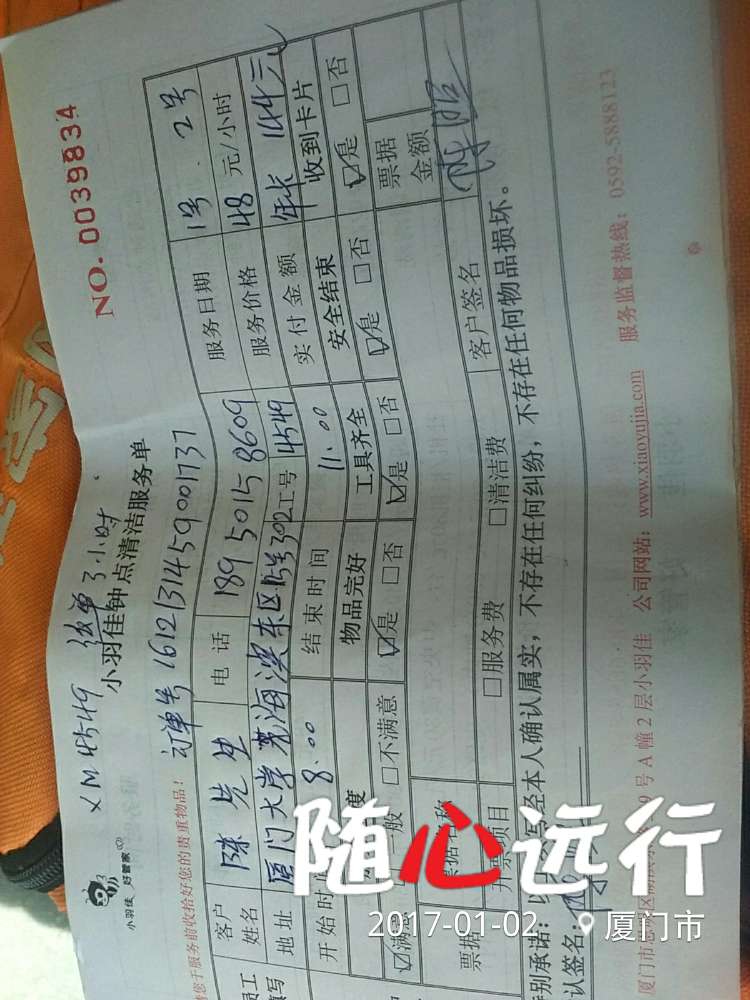 XM4549 做单3小时
小羽佳 好管家
小羽佳钟点清洁服务单
NO.0039834
订单号 1612131459001737
于服务前收拾好您的贵重物品!
客户姓名 陈先生 电话 189 5015 8609 服务日期 1号.2号
地址 厦门大学 海滨东区 302 工号 4549 服务价格 48元/小时
开始时 8.00 结束时间 11.00 实付金额 年卡 144元
度 物品完好 工具齐全 安全结束 收到卡片
☑满意 □一般 □不满意 ☑是 □否 ☑是 □否 ☑是 □否 ☑是 □否
票据 票据名称 票据金额
开票项目 □服务费 □清洁费 客户签名
特别承诺:以上 写经本人确认属实,不存在任何纠纷,不存在任何物品损坏。
认签名:
厦门市思明区 9号A幢2层小羽佳 公司网站:www.xiaoyujia.com 服务监督热线:0592-5888123
随心远行
2017-01-02 厦门市